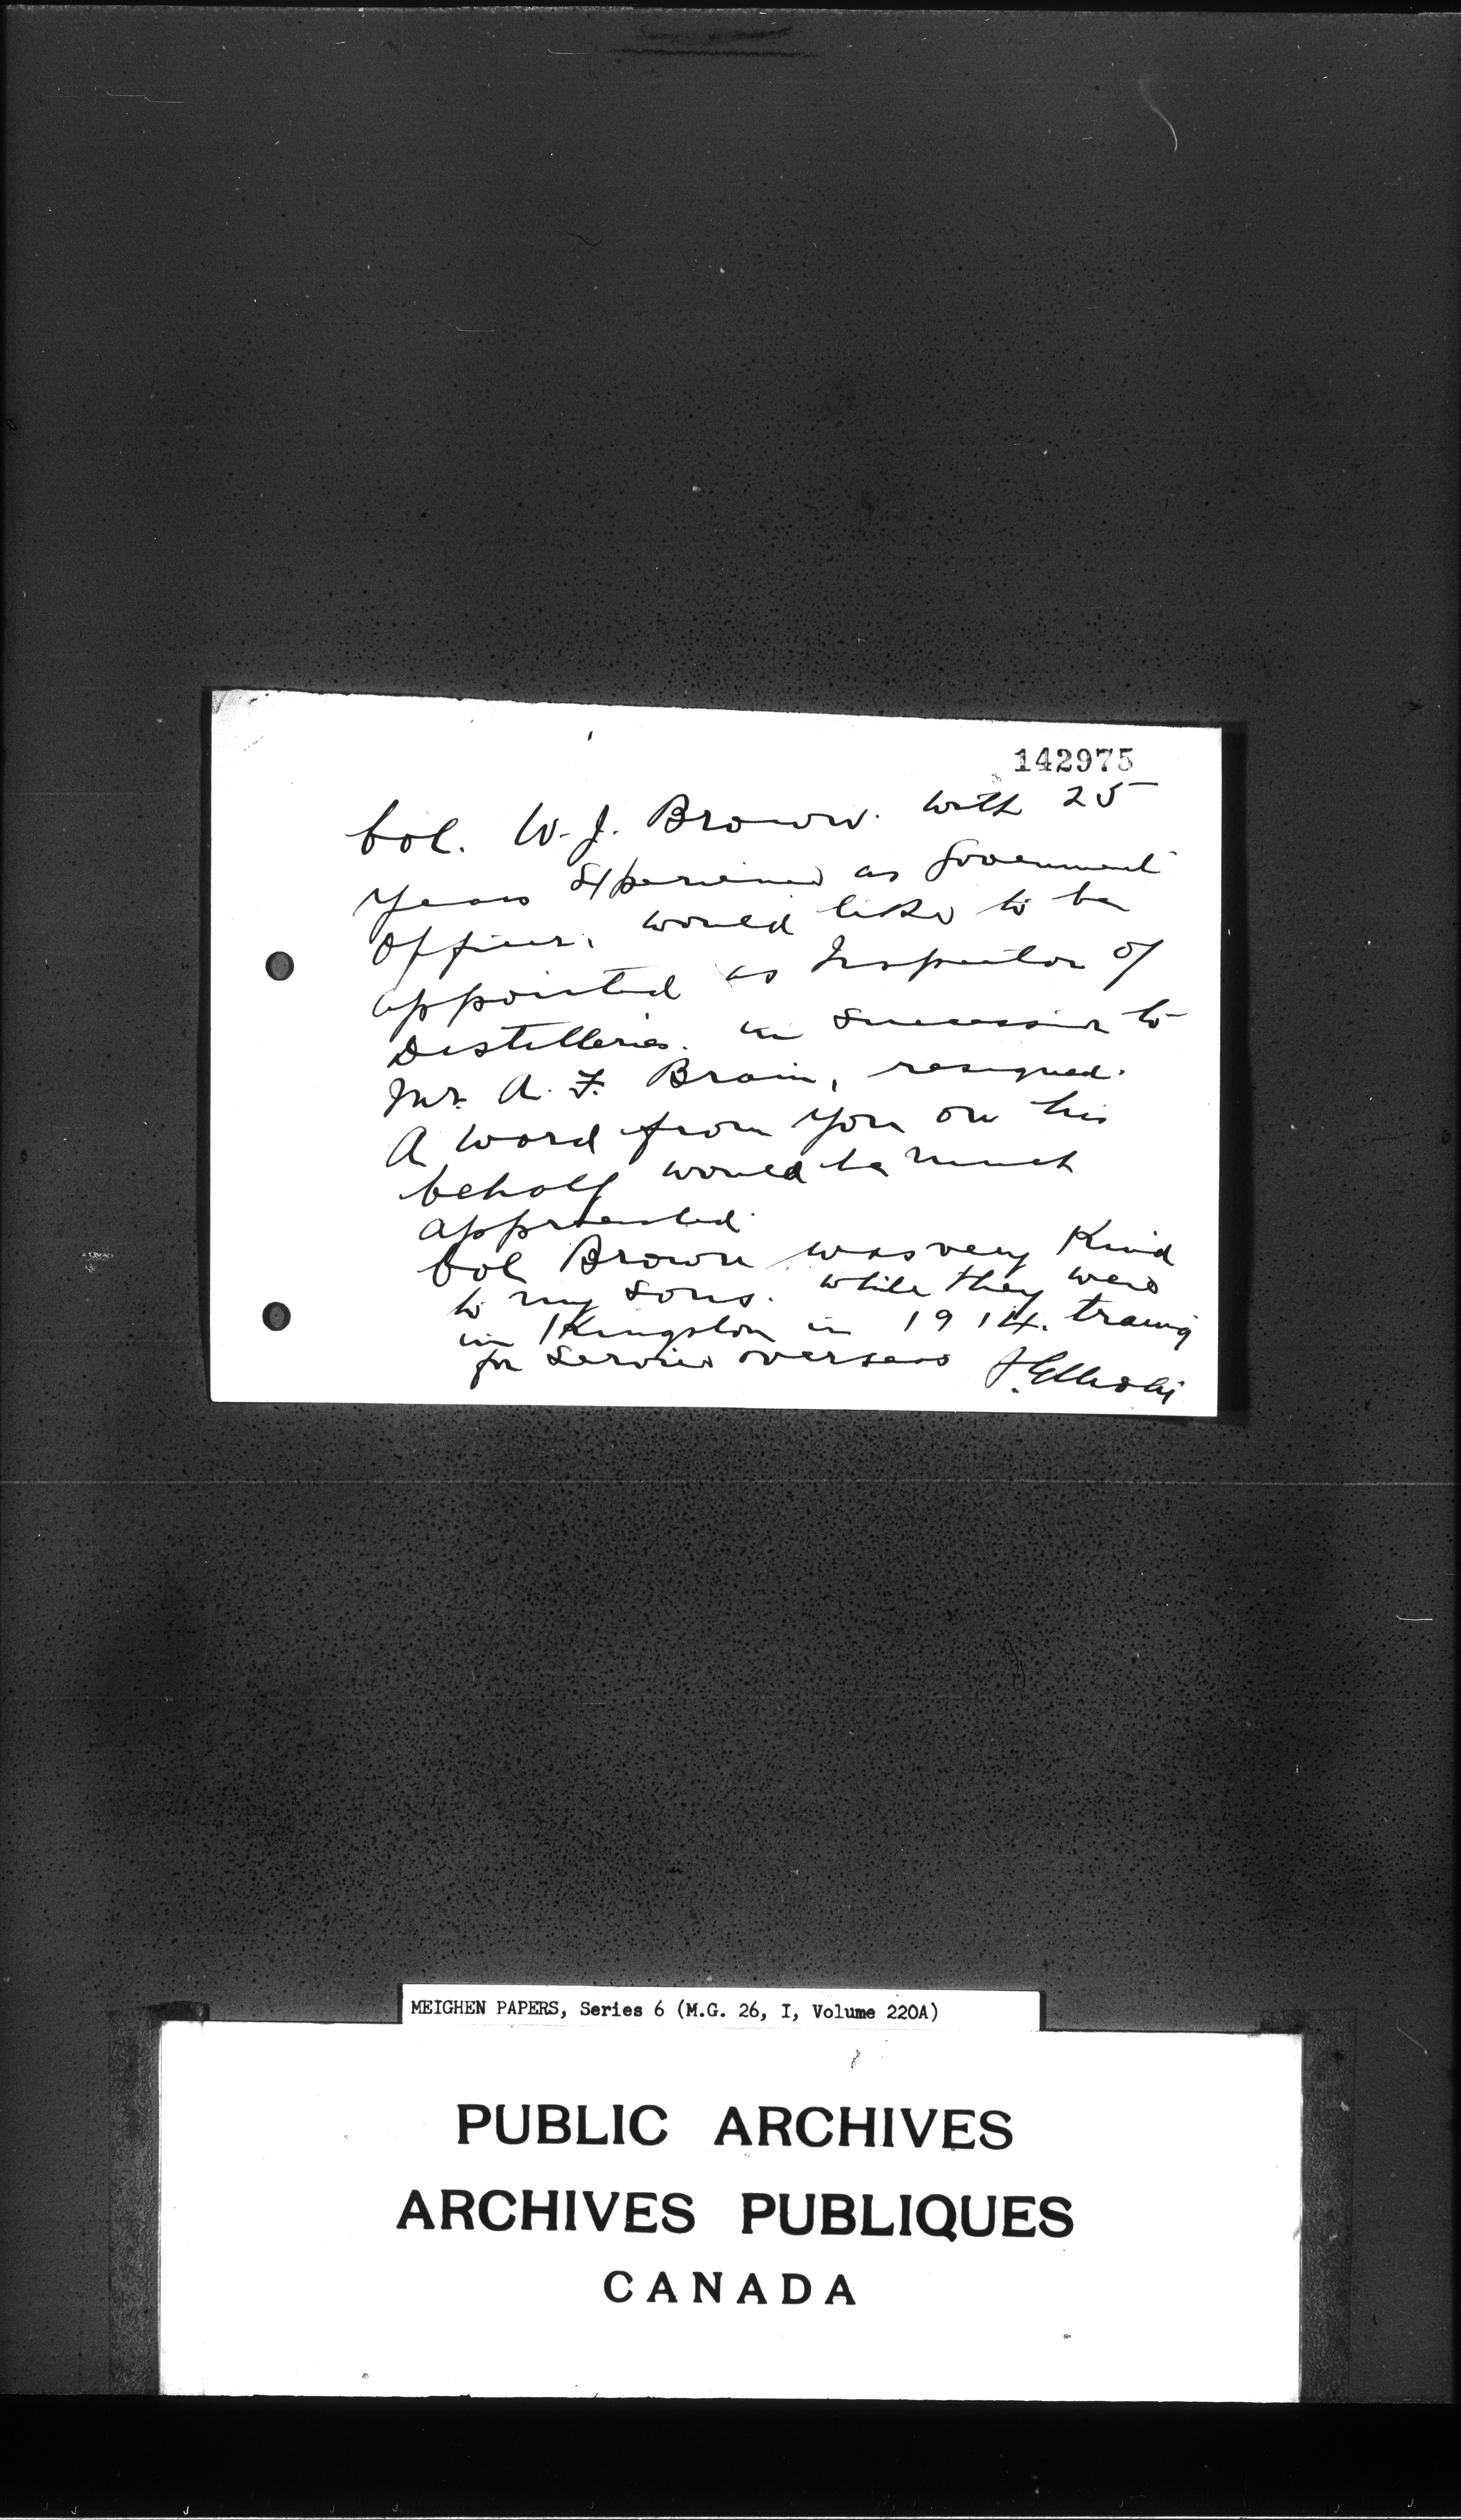 142975
Col. W. J. Brown. with 25
years experience as Government
officer, would like to be
appointed as Inspector of
Distilleries. in succession to
Mr. A. F. Brain, resigned.
A word from you on his
behalf would be much
appreciated.
Col Brown was very Kind
to my sons. while they were
in Kingston in 1914. traing
for service overseas
MEIGHEN PAPERS, Series 6 (M.G. 26, I, Volume 220A)
PUBLIC ARCHIVES
ARCHIVES PUBLIQUES
CANADA